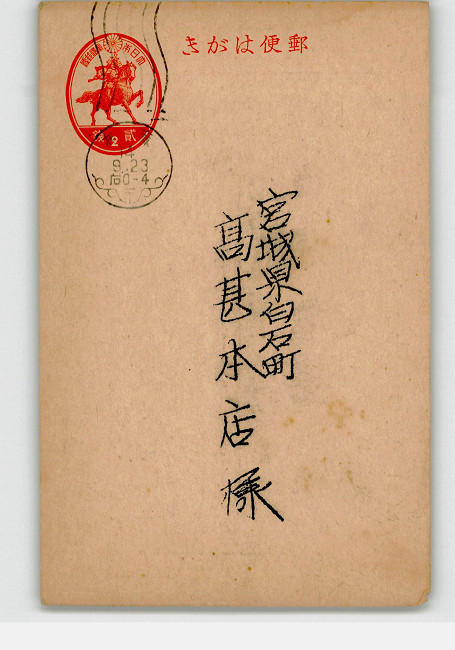 郵便はがき
大日本帝國郵便
貳銭
2
14
9.23
后0-4
宮城県白石町
髙甚本店様